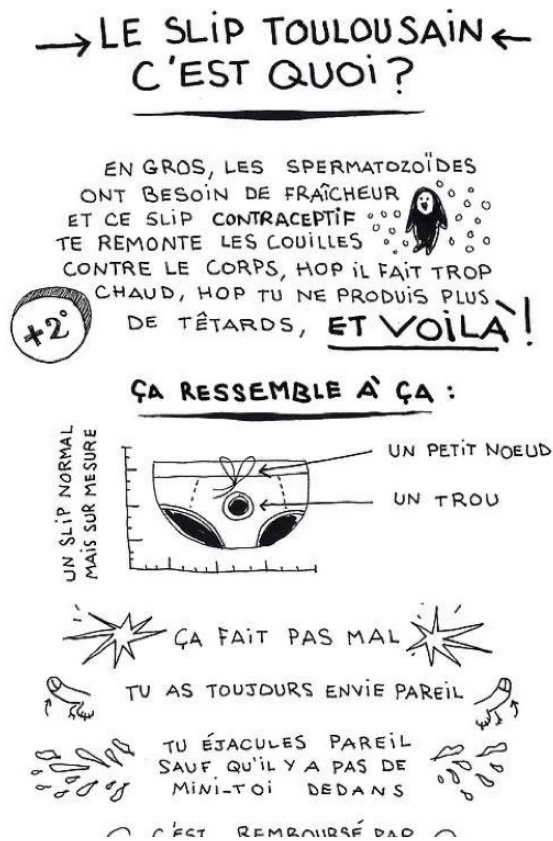 LE SLIP TOULOUSAIN
C'EST QUOI ?
EN GROS, LES SPERMATOZOÏDES
ONT BESOIN DE FRAÎCHEUR
ET CE SLIP CONTRACEPTIF
TE REMONTE LES COUILLES
CONTRE LE CORPS, HOP IL FAIT TROP
CHAUD, HOP TU NE PRODUIS PLUS
DE TÊTARDS, ET VOILÀ !
+2°
ÇA RESSEMBLE À ÇA :
UN SLIP NORMAL
MAIS SUR MESURE
UN PETIT NOEUD
UN TROU
ÇA FAIT PAS MAL
TU AS TOUJOURS ENVIE PAREIL
TU ÉJACULES PAREIL
SAUF QU'IL Y A PAS DE
MINI-TOI DEDANS
C'EST REMBOURSÉ PAR